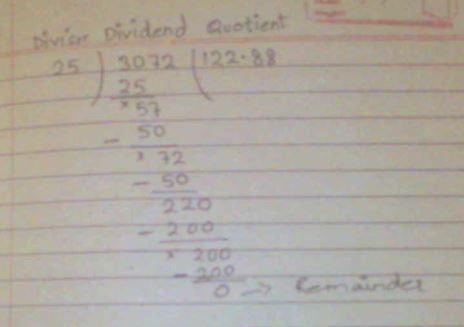 Divisr Dividend Quotient
25 ) 3072 ( 122.88
25
× 57
- 50
× 72
- 50
220
- 200
× 200
- 200
0 → Remainder